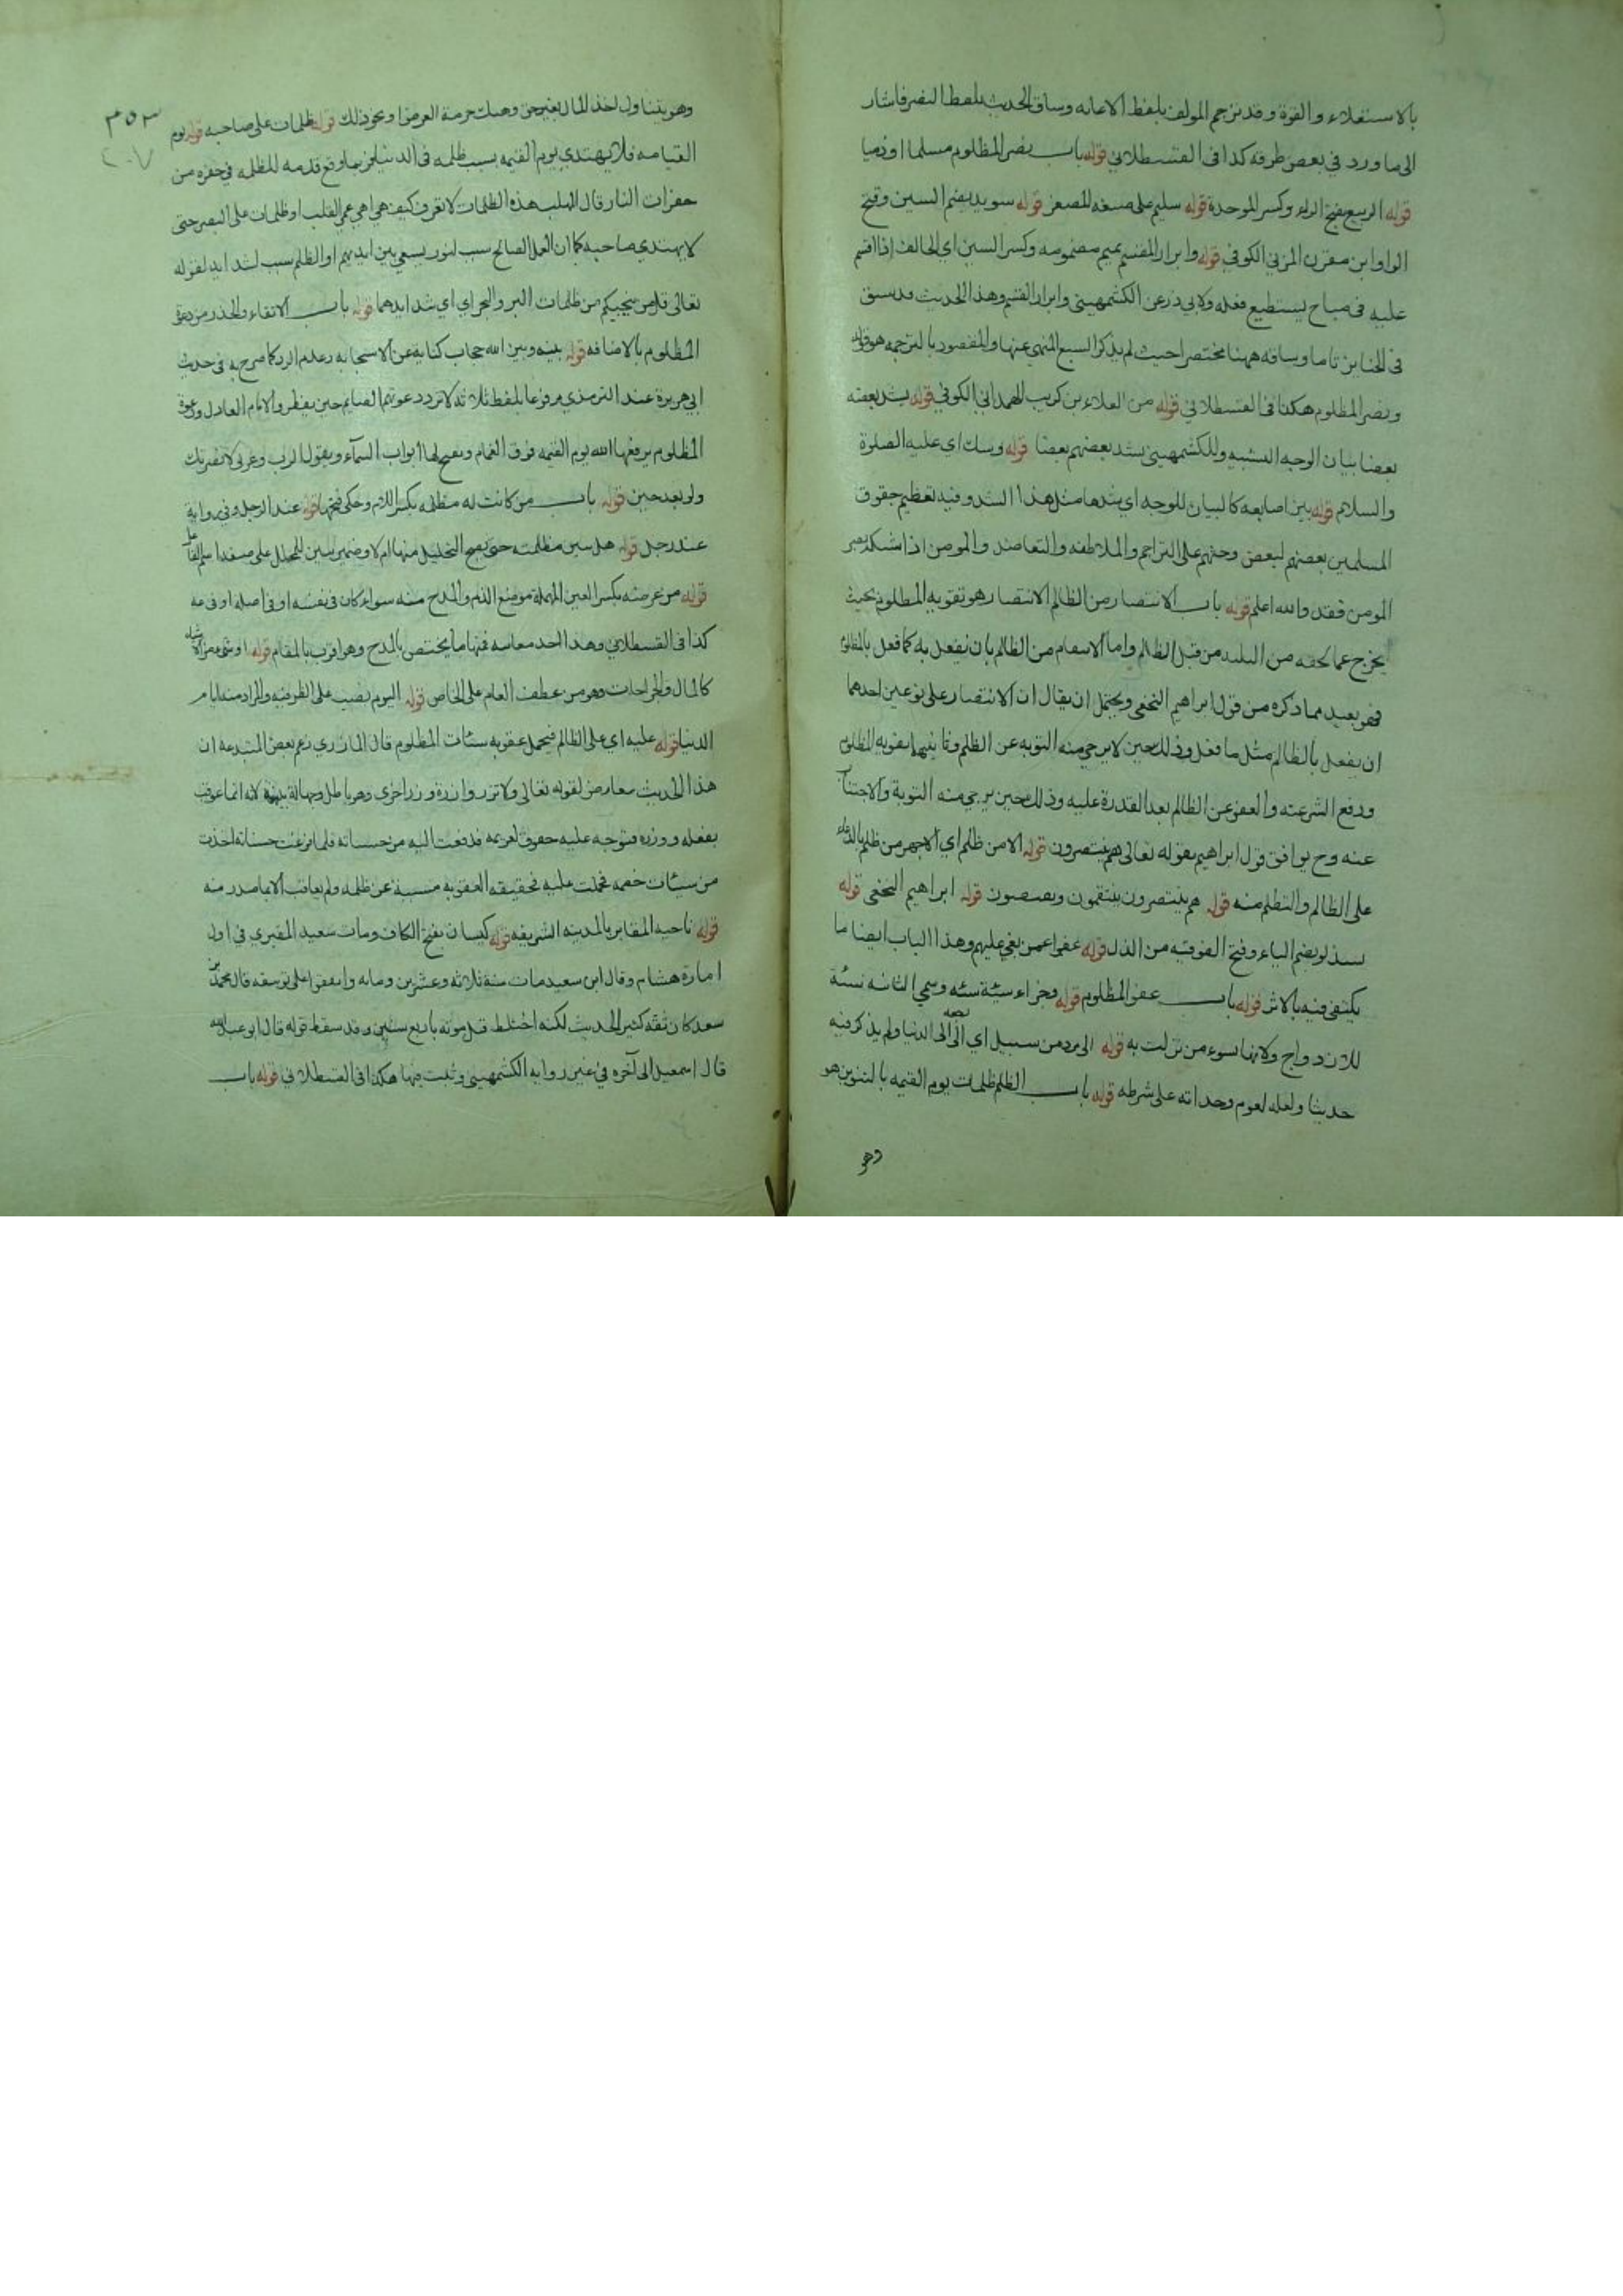 بالاستعلاء والقوة وقد ترجم المولف بلفظ الاعانه وساق الحديث بلفظ النصر فاشار
الى ما ورد في بعض طرقه كذا في القسطلاني قوله باب نصر المظلوم مسلما او ذميا
قوله الربيع بفتح الراء وكسر الموحدة قوله سليم على صيغه المصغر قوله سويد بضم السين وفتح
الواو ابن مقرن المزني الكوفي قوله وابرار المقسم بميم مضمومه وكسر السين اي الحالف اذا اقسم
عليه في مباح يستطيع فعله ولابي ذر عن الكشمهيني وابرار القسم وهذا الحديث قد سبق
في الجنايز تاما وساقه ههنا مختصرا حيث لم يذكر السبع المنهي عنها والمقصود بالترجمه هو قوله
ونصر المظلوم هكذا في القسطلاني قوله من العلاء بن كريب الهمداني الكوفي قوله يشد بعضه
بعضا بيان الوجه التشبيه وللكشمهيني يشد بعضهم بعضا قوله وشبك اي عليه الصلوة
والسلام قوله بين اصابعه كالبيان للوجه اي شدها مثل هذا الشد وفيه تعظيم حقوق
المسلمين بعضهم لبعض وحثهم على التراحم والملاطفه والتعاضد والمومن اذا شد
المومن فقد والله اعلم قوله باب الانتصار من الظالم الانتصار هو تقويه المظلوم بحيث
يخرج عما لحقه من من قبل الظالم واما الانتقام من الظالم بان يفعل به كما فعل بالمظلوم
فهو بعيد مما ذكره من قول ابراهيم النخعي ويحتمل ان يقال ان الانتصار على نوعين احدهما
ان يفعل بالظالم مثل ما فعل وذلك حين لا يرجي منه التوبه عن الظلم وثانيهما تقويه المظلوم
ودفع الشر عنه والعفو عن الظالم بعد القدرة عليه وذلك حين يرجي منه التوبة والاجتناب
عنه وح يوافق قول ابراهيم بقوله تعالى هم ينتصرون قوله الا من ظلم اي الا جهر من ظلم بالدعاء
على الظالم والتظلم منه قوله هم ينتصرون ينتقمون ويقتصون قوله ابراهيم النخعي قوله
يستذلو بضم الياء وفتح الفوقيه من الذل قوله عفوا عمن بغي عليهم وهذا الباب ايضا ما
يكتفى فيه بالاثر قوله باب عفو المظلوم قوله وجزاء سيئة سيئه وسمي الثانيه سيئة
للازدواج ولانها تسوء من نزلت به قوله الى مرد من سبيل اي الى الدنيا ولم يذكر فيه
حديثا ولعله لعدم وجدانه على شرطه قوله باب الظلم ظلمات يوم القيمه بالتنوين هو
وهو
٣٥٣
٢٠٧
وهو يتناول اخذ المال بغير حق وهتك حرمة العرض او نحو ذلك قوله ظلمات على صاحبه قوله يوم
القيامه فلا يهتدي يوم القيمه بسبب ظلمه في الدنيا فربما وقع قدمه للظلمه في حفره من
حفرات النار قال المهلب هذه الظلمات لا تعرف كيف هي اهي عمى القلب او ظلمات على البصر حتى
لا يهتدي صاحبه كما ان العمل الصالح سبب لنور يسعى بين ايديهم او الظلم سبب لشدايد لقوله
تعالى قل من ينجيكم من ظلمات البر والبحر اي شدايدهما قوله باب الاتقاء والحذر من دعوة
المظلوم بالاضافه قوله بينه وبين الله حجاب كناية عن الاستجابه وعدم الرد كما صرح به في حديث
ابي هريرة عند الترمذي مرفوعا بلفظ ثلاثة لا ترد دعوتهم الصايم حين يفطر والامام العادل ودعوة
المظلوم يرفعها الله يوم القيمه فوق الغمام ويفتح لها ابواب السماء ويقول الرب وعزتي لانصرنك
ولو بعد حين قوله باب من كانت له مظلمه بكسر اللام وحكي فتحها قوله عند الرجل وفي رواية
عند رجل قوله هل يبين مظلمته حتى يصح التحليل منها ام لا وضمير يبين للمحلل على صيغة اسم الفاعل
قوله من عرضه بكسر العين المهملة موضع الذم والمدح منه سواء كان في نفسه او في اصله او فرعه
كذا في القسطلاني وهذا احد معانيه فيها ما يختص بالمدح وهو اقرب بالمقام قوله او شيء من الاشياء
كالمال والجراحات وهو من عطف العام على الخاص قوله اليوم نصب على الظرفيه والمراد منه ايام
الدنيا قوله عليه اي على الظالم فيحمل عقوبه سيئات المظلوم قال المازري زعم بعض المبتدعه ان
هذا الحديث معارض لقوله تعالى ولا تزر وازرة وزر اخرى وهو باطل وجهالة بينة لانه انما عوقب
بفعله ووزره فتوجه عليه حقوق لغريمه فدفعت اليه من حسناته فلما فرغت حسناته اخذت
من سيئات خصمه فحملت عليه فحقيقه العقوبه مسببة عن ظلمه ولم يعاقب الا بما صدر منه
قوله ناحيه المقابر بالمدينه الشريفه قوله كيسان بفتح الكاف ومات سعيد المقبري في اول
امارة هشام وقال ابن سعيد مات سنة ثلاثه وعشرين ومايه واتفقوا على توثيقه قال محمد بن
سعد كان ثقه كثير الحديث لكنه اختلط قبل موته باربع سنين وقد سقط قوله قال ابو عبد الله
قال اسمعيل الى آخره في غير روايه الكشمهيني وثبت فيها هكذا في القسطلاني قوله باب